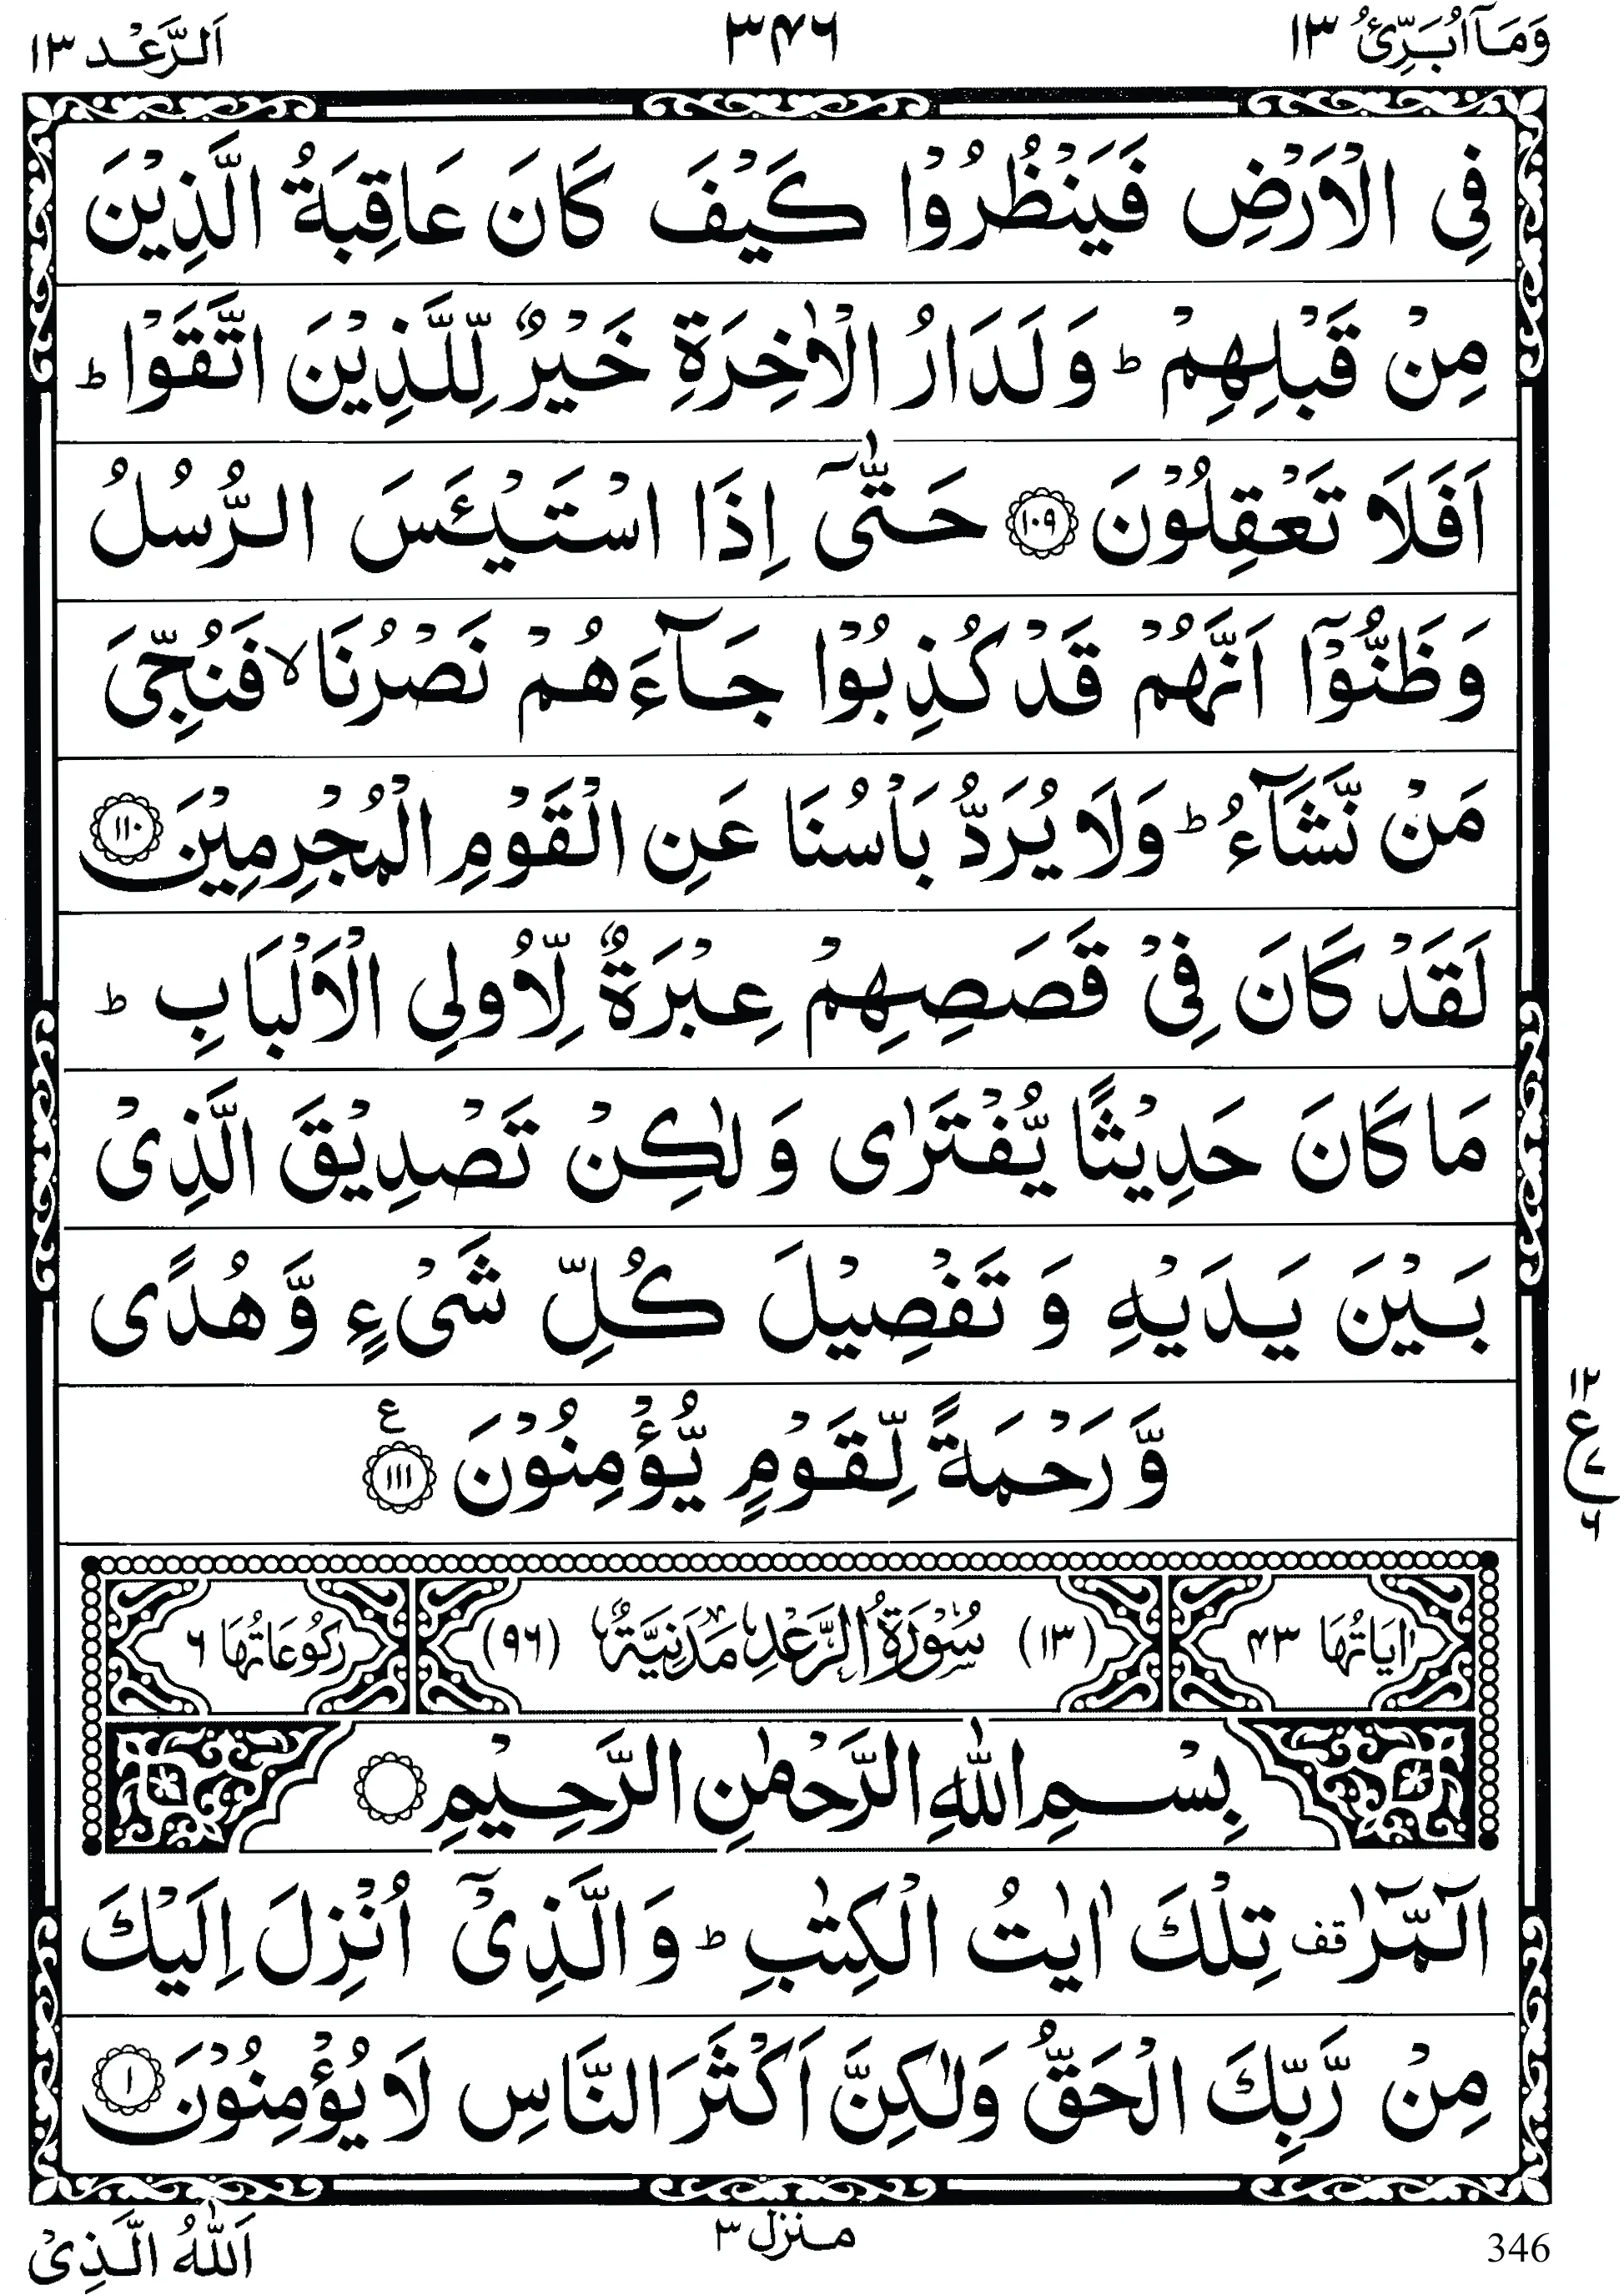 وَمَاۤ اُبَرِّئُ ١٣ ٣٤٦ اَلرَّعْد ١٣
فِى الْاَرْضِ فَيَنْظُرُوْا كَيْفَ كَانَ عَاقِبَةُ الَّذِيْنَ
مِنْ قَبْلِهِمْ ؕ وَلَدَارُ الْاٰخِرَةِ خَيْرٌ لِّلَّذِيْنَ اتَّقَوْا ؕ
اَفَلَا تَعْقِلُوْنَ ١٠٩ حَتّٰىۤ اِذَا اسْتَيْئَسَ الرُّسُلُ
وَظَنُّوْۤا اَنَّهُمْ قَدْ كُذِبُوْا جَآءَهُمْ نَصْرُنَا ۙ فَنُجِّىَ
مَنْ نَّشَآءُ ؕ وَلَا يُرَدُّ بَاْسُنَا عَنِ الْقَوْمِ الْمُجْرِمِيْنَ ١١٠
لَقَدْ كَانَ فِىْ قَصَصِهِمْ عِبْرَةٌ لِّاُولِى الْاَلْبَابِ ؕ
مَا كَانَ حَدِيْثًا يُّفْتَرٰى وَلٰكِنْ تَصْدِيْقَ الَّذِىْ
بَيْنَ يَدَيْهِ وَتَفْصِيْلَ كُلِّ شَىْءٍ وَّهُدًى
وَّرَحْمَةً لِّقَوْمٍ يُّؤْمِنُوْنَ ١١١ ع
١٢
ع
٧
٦
اٰيَاتُهَا ٤٣ (١٣) سُوْرَةُ الرَّعْدِ مَدَنِيَّةٌ (٩٦) رُكُوْعَاتُهَا ٦
بِسْمِ اللّٰهِ الرَّحْمٰنِ الرَّحِيْمِ
الٓمّٓرٰ ࣞ تِلْكَ اٰيٰتُ الْكِتٰبِ ؕ وَالَّذِىْۤ اُنْزِلَ اِلَيْكَ
مِنْ رَّبِّكَ الْحَقُّ وَلٰكِنَّ اَكْثَرَ النَّاسِ لَا يُؤْمِنُوْنَ ١
346 منزل ٣ اَللّٰهُ الَّذِىْ